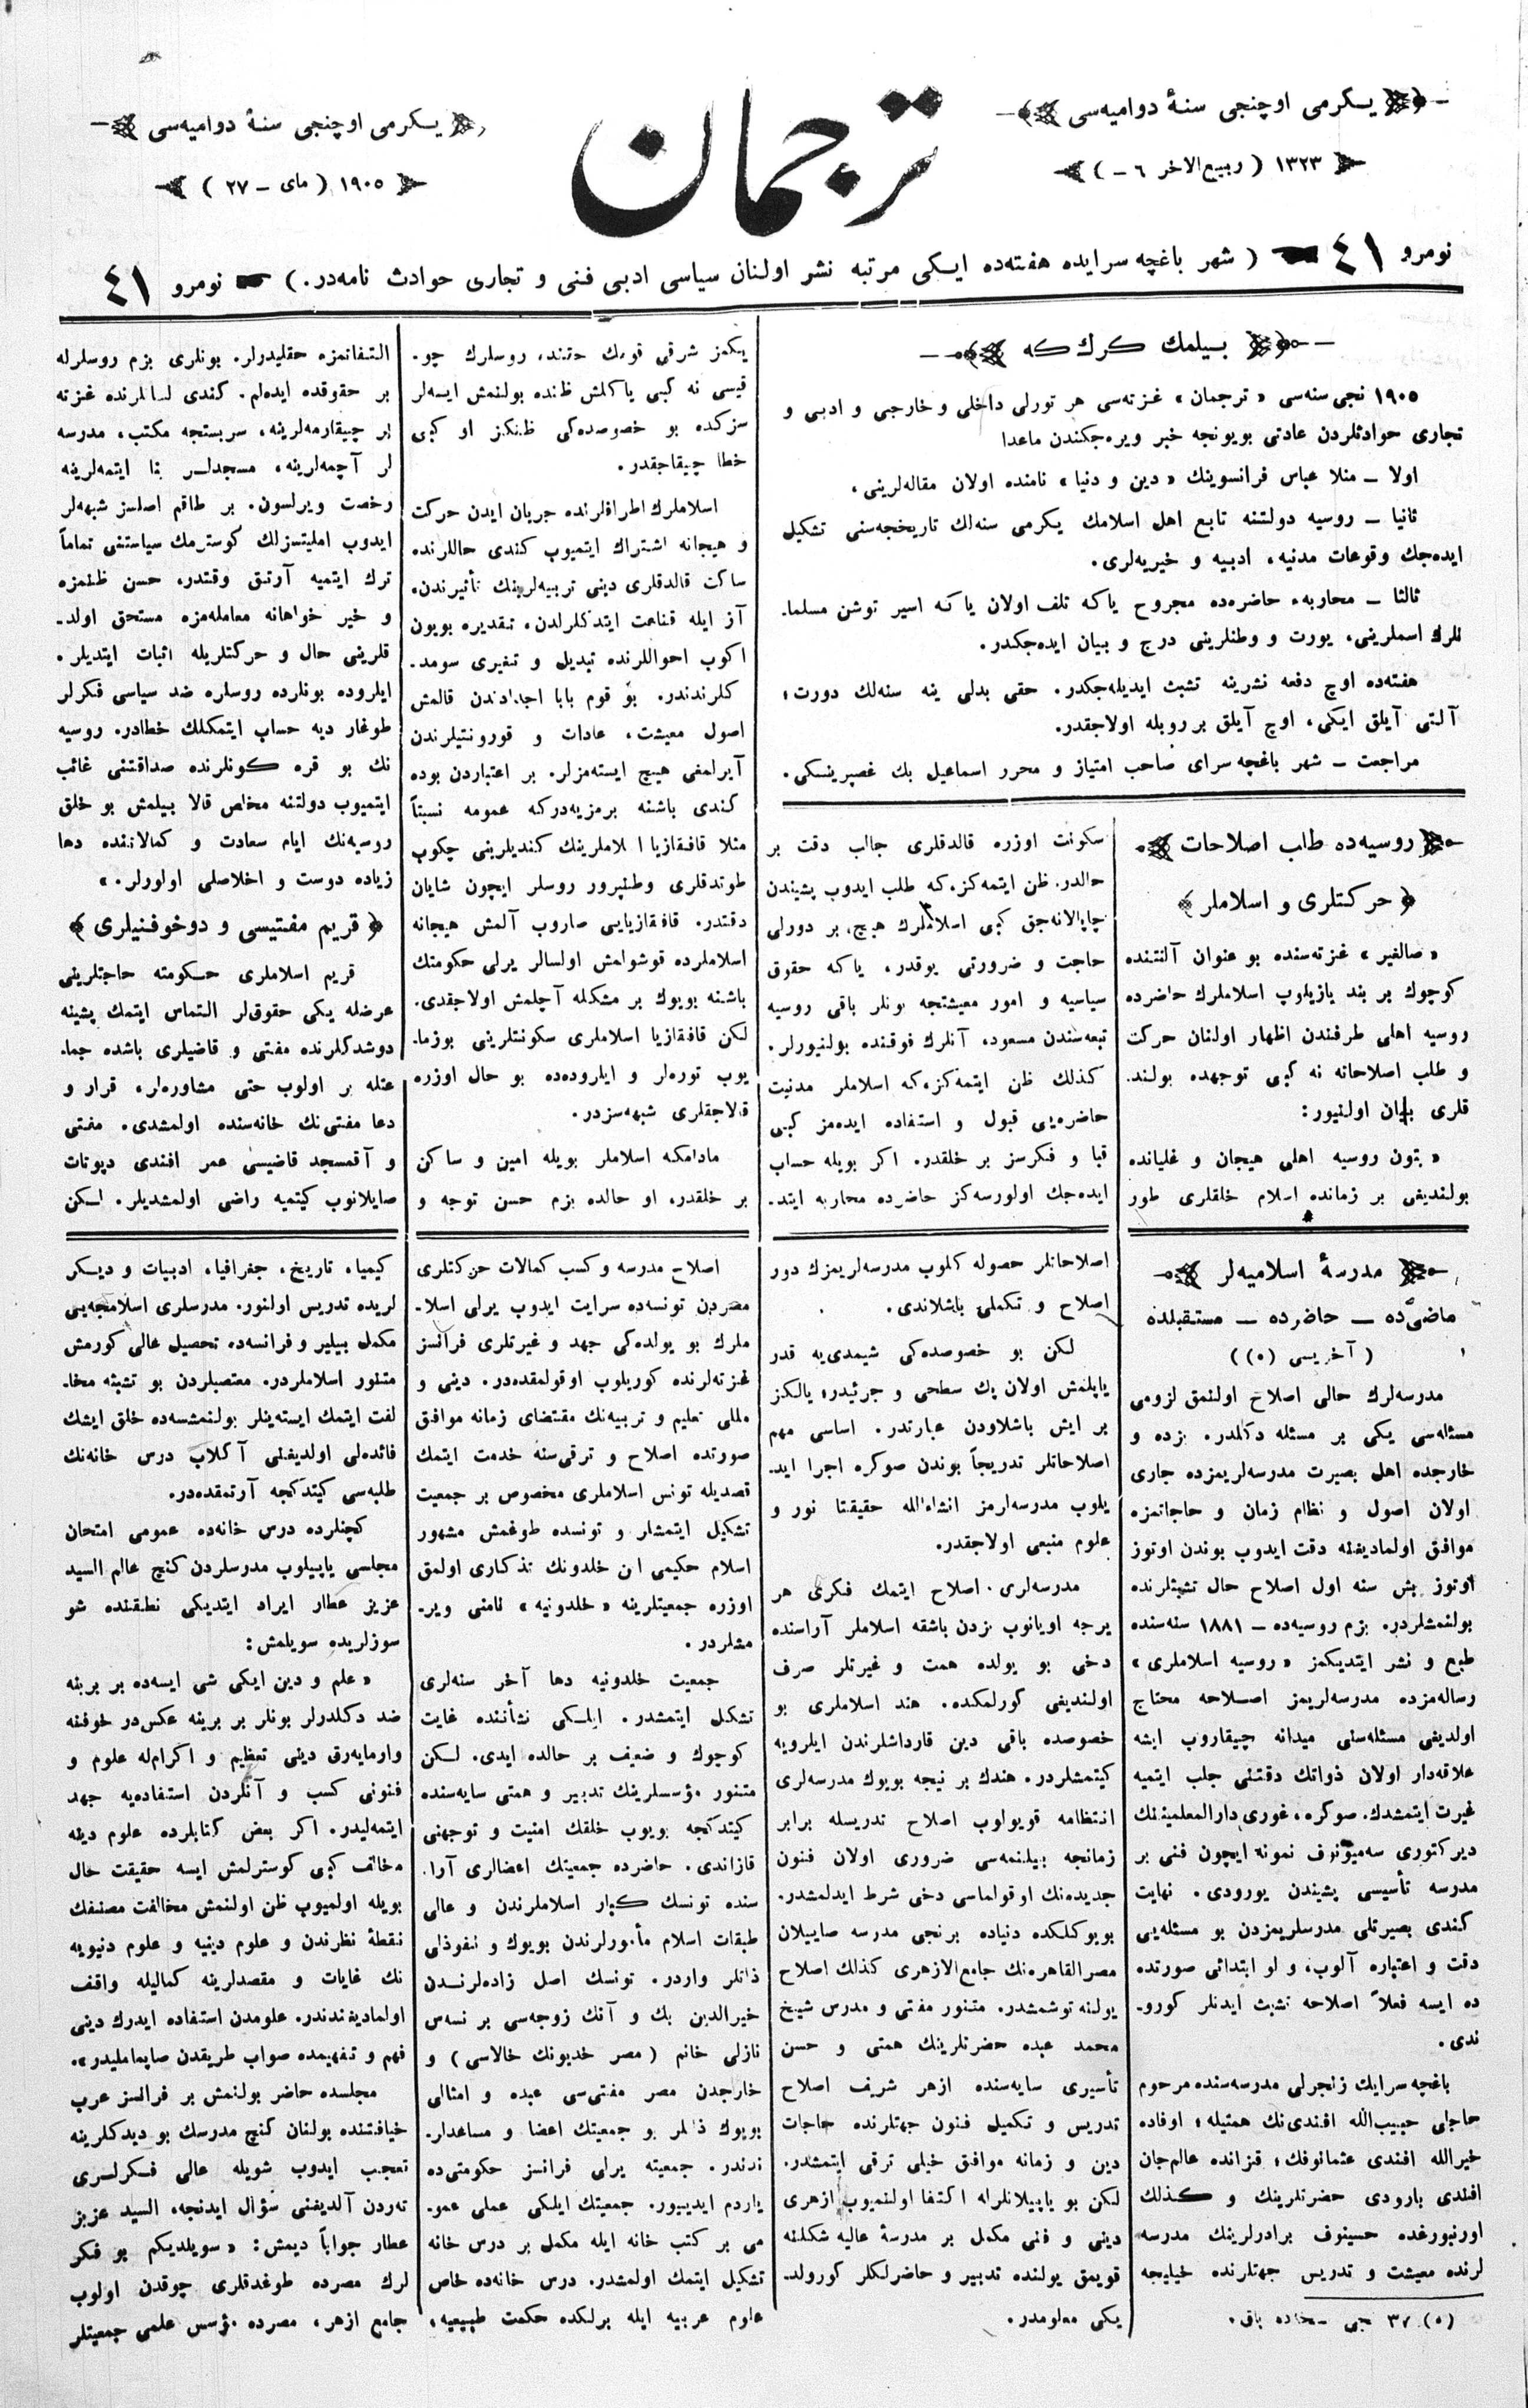 يكرمی اوچنجی سنۀ دواميه‌سی
١٣٢٣ ( ربيع‌الاخر ٦ - )
ترجمان
يكرمی اوچنجی سنۀ دواميه‌سی
١٩٠٥ ( مای - ٢٧ )
نومرو ٤١ ( شهر باغچه سرايده هفته‌ده ايكی مرتبه نشر اولنان سياسی ادبی فنی و تجاری حوادث نامه‌در . ) نومرو ٤١
بيلمك كرك كه
١٩٠٥ نجی سنه‌سی « ترجمان » غزته‌سی هر تورلی داخلی و خارجی و ادبی و
تجاری حوادثلردن عادتی بويونجه خبر ويره‌جكندن ماعدا
اولا ــ منلا عباس فرانسوينك « دين و دنيا » نامنده اولان مقاله‌لرينی ،
ثانيا ــ روسيه دولتنه تابع اهل اسلامك يكرمی سنه‌لك تاريخجه‌سنی تشكيل
ايده‌جك وقوعات مدنيه، ادبيه و خيريه‌لری .
ثالثا ــ محاربه‌ء حاضره‌ده مجروح ياكه تلف اولان ياكه اسير توشن مسلما-
نلرك اسملرينی، يورت و وطنلرينی درج و بيان ايده‌جكدر .
هفته‌ده اوچ دفعه نشرينه تشبث ايديله‌جكدر . حقی بدلی ينه سنه‌لك دورت ؛
آلتی آيلق ايكی ، اوچ آيلق بر روبله اولاجقدر .
مراجعت ــ شهر باغچه سرای صاحب امتياز و محرر اسماعيل بك غصپرينسكی .
روسيه‌ده طلب اصلاحات
حركتلری و اسلاملر
« صالغير » غزته‌سنده بو عنوان آلتنده
كوچوك بر بند يازيلوب اسلاملرك حاضرده
روسيه اهلی طرفندن اظهار اولنان حركت
و طلب اصلاحانه نه كبی توجهده بولند-
قلری بيان اولنيور :
« بتون روسيه اهلی هيجان و غليانده
بولنديغی بر زمانده اسلام خلقلری طور
سكونت اوزره قالدقلری جالب دقت بر
حالدر . ظن ايتمه‌كزكه طلب ايدوب پشيندن
چاپالانه‌جق كبی اسلاملرك هيچ بر دورلی
حاجت و ضرورتی يوقدر ، ياكه حقوق
سياسيه و امور معيشتجه بونلر باقی روسيه
تبعه‌سندن مسعود، آنلرك فوقنده بولنيورلر .
كذلك ظن ايتمه‌كزكه اسلاملر مدنيت
حاضره‌يی قبول و استفاده ايده‌مز كبی
قبا و فكرسز بر خلقدر . اكر بويله حساب
ايده‌جك اولورسه‌كز حاضرده محاربه ايتد-
يكمز شرقی قومك حقنده روسلرك چو-
قيسی نه كبی ياكلش ظنده بولنمش ايسه‌لر
سزكده بو خصوصده‌كی ظنكز او كبی
خطا چيقاجقدر .
اسلاملرك اطرافلرنده جريان ايدن حركت
و هيجانه اشتراك ايتميوب كندی حاللرنده
ساكت قالدقلری دينی تربيه‌لرينك تأثيرندن ،
آز ايله قناعت ايتدكلرلدن ، تقديره بويون
اكوب احواللرنده تبديل و تغيری سومد-
كلرندندر . بو قوم بابا اجدادندن قالمش
اصول معيشت ، عادات و قورونتيلرندن
آيرلمغی هيچ ايسته‌مزلر . بر اعتباردن بوده
كندی باشنه برمزيه‌دركه عمومه نسبتاً
مثلا قافقازيا اسلاملرينك كنديلرينی چكوب
طوتدقلری وطنپرور روسلر ايچون شايان
دقتدر . قافقازيايی صاروب آلمش هيجانه
اسلاملرده قوشولمش اولسالر يرلی حكومتك
باشنه بويوك بر مشكله آچلمش اولاجقدی .
لكن قافقازيا اسلاملری سكونتلرينی بوزما-
يوب توره‌لر و ايلروده‌ده بو حال اوزره
قالاجقلری شبهه‌سزدر .
مادامكه اسلاملر بويله امين و ساكن
بر خلقدر ، او حالده بزم حسن توجه و
التفاتمزه حقليدرلر . بونلری بزم روسلرله
بر حقوقده ايده‌لم . كندی لسانلرنده غزته
لر چيقارمه‌لرينه ، سربستجه مكتب ، مدرسه
لر آچمه‌لرينه ، مسجدلر بنا ايتمه‌لرينه
رخصت ويرلسون . بر طاقم اصلسز شبهه‌لر
ايدوب امليتسزلك كوسترمك سياستنی تماماً
ترك ايتميه آرتق وقتدر ، حسن ظنمزه
و خير خواهانه معامله‌مزه مستحق اولد-
قلرينی حال و حركتلريله اثبات ايتديلر .
ايلروده بونلرده روسلره ضد سياسی فكرلر
طوغار ديه حساب ايتمكلك خطادر . روسيه
نك بو قره كونلرنده صداقتنی غائب
ايتميوب دولتنه مخلص قالا بيلمش بو خلق
روسيه‌نك ايام سعادت و كمالاتنده دها
زياده دوست و اخلاصلی اولورلر . »
قريم مفتيسی و دوخوفنيلری
قريم اسلاملری حكومته حاجتلرينی
عرضله يكی حقوق‌لر التماس ايتمك پشينه
دوشدكلرنده مفتی و قاضيلری باشده جما-
عتله بر اولوب حتی مشاوره‌لر ، قرار و
دعا مفتی‌نك خانه‌سنده اولمشدی . مفتی
و آقمسجد قاضيسی عمر افندی دپوتات
صايلانوب كيتميه راضی اولمشديلر . لكن
مدرسۀ اسلاميه‌لر
ماضی‌ده ــ حاضرده ــ مستقبلده
( آخريسی (٥) )
مدرسه‌لرك حالی اصلاح اولنمق لزومی
مسئله‌سی يكی بر مسئله دكلدر . بزده و
خارجده اهل بصيرت مدرسه‌لريمزده جاری
اولان اصول و نظام زمان و حاجاتمزه
موافق اولماديغنه دقت ايدوب بوندن اوتوز
اوتوز بش سنه اول اصلاح حال تشبثلرنده
بولنمشلردر . بزم روسيه‌ده ــ ١٨٨١ سنه‌سنده
طبع و نشر ايتديكمز « روسيه اسلاملری »
رساله‌مزده مدرسه‌لريمز اصلاحه محتاج
اولديغی مسئله‌سنی ميدانه چيقاروب ايشه
علاقه‌دار اولان ذواتك دقتنی جلب ايتميه
غيرت ايتمشدك . صوكره ، غوری دارالمعلميننك
ديركتوری سه‌ميونوف نمونه ايچون فنی بر
مدرسه تأسيسی پشيندن يورودی . نهايت
كندی بصيرتلی مدرسلريمزدن بو مسئله‌يی
دقت و اعتباره آلوب، و لو ابتدائی صورتده
ده ايسه فعلاً اصلاحه تشبث ايدنلر كورو-
ندی .
باغچه سرايك زنجرلی مدرسه‌سنده مرحوم
حاجی حبيب‌الله افندی‌نك همتيله ؛ اوفاده
خيرالله افندی عثمانوفك ؛ قزانده عالم‌جان
افندی بارودی حضرتلرينك و كذلك
اورنبورغده حسينوف برادرلرينك مدرسه
لرنده معيشت و تدريس جهتلرنده خيليجه
اصلاحاتلر حصوله كلوب مدرسه‌لريمزك دور
اصلاح و تكملی باشلاندی .
لكن بو خصوصده‌كی شيمدی‌يه قدر
ياپلمش اولان پك سطحی و جرئيدر ؛ يالكز
بر ايش باشلاودن عبارتدر . اساسی مهم
اصلاحاتلر تدريجاً بوندن صوكره اجرا ايد-
يلوب مدرسه‌لرمز انشاءالله حقيقتا نور و
علوم منبعی اولاجقدر .
مدرسه‌لری اصلاح ايتمك فكری هر
يرجه اويانوب بزدن باشقه اسلاملر آراسنده
دخی بو يولده همت و غيرتلر صرف
اولنديغی كورلمكده . هند اسلاملری بو
خصوصده باقی دين قارداشلرندن ايلرويه
كيتمشلردر . هندك بر نيجه بويوك مدرسه‌لری
انتظامه قويولوب اصلاح تدريسله برابر
زمانجه بيلنمه‌سی ضروری اولان فنون
جديده‌نك اوقولماسی دخی شرط ايدلمشدر .
بويوكلكده دنياده برنجی مدرسه صاييلان
مصرالقاهره‌نك جامع‌الازهری كذلك اصلاح
يولنه توشمشدر . متنور مفتی و مدرس شيخ
محمد عبده حضرتلرينك همتی و حسن
تأسيری سايه‌سنده ازهر شريف اصلاح
تدريس و تكميل فنون جهتلرنده حاجات
دين و زمانه موافق خيلی ترقی ايتمشدر .
لكن بو ياپيلانلرله اكتفا اولنميوب ازهری
دينی و فنی مكمل بر مدرسۀ عاليه شكلنه
قويمق يولنده تدبير و حاضرلكلر كورولد-
يكی معلومدر .
اصلاح مدرسه و كسب كمالات حركتلری
مصردن تونسه‌ده سرايت ايدوب يرلی اسلا-
ملرك بو يولده‌كی جهد و غيرتلری فرانسز
غزته‌لرنده كوريلوب اوقولمقده‌در . دينی و
مللی تعليم و تربيه‌نك مقتضای زمانه موافق
صورتده اصلاح و ترقی‌سنه خدمت ايتمك
قصديله تونس اسلاملری مخصوص بر جمعيت
تشكيل ايتمشلر و تونسده طوغمش مشهور
اسلام حكيمی ابن خلدونك تذكاری اولمق
اوزره جمعيتلرينه « خلدونيه » نامنی وير-
مشلردر .
جمعيت خلدونيه دها آخر سنه‌لری
تشكل ايتمشدر . ايلكی نشأتنده غايت
كوچوك و ضعيف بر حالده ايدی . لكن
متنور مؤسسلرينك تدبير و همتی سايه‌سنده
كيتدكجه بويوب خلقك امنيت و توجهنی
قازاندی . حاضرده جمعيتك اعضالری آرا-
سنده تونسك كبار اسلاملرندن و عالی
طبقات اسلام مأمورلرندن بويوك و نفوذلی
ذاتلر واردر . تونسك اصل زاده‌لرندن
خيرالدين بك و آنك زوجه‌سی پرنسه‌س
نازلی خانم ( مصر خديونك خالاسی ) و
خارجدن مصر مفتی‌سی عبده و امثالی
بويوك ذاتلر بو جمعيتك اعضا و مساعدلر-
ندندر . جمعيته يرلی فرانسز حكومتی‌ده
ياردم ايديييور . جمعيتك ايلكی عملی عمو-
می بر كتب خانه ايله مكمل بر درس خانه
تشكيل ايتمك اولمشدر . درس خانه‌ده خاص
علوم عربيه ايله برلكده حكمت طبيعيه ،
كيميا ، تاريخ ، جغرافيا ، ادبيات و ديكر
لريده تدريس اولنور . مدرسلری اسلامجه‌يی
مكمل بيلير و فرانسه‌ده تحصيل عالی كورمش
متنور اسلاملردر . معتصبلردن بو تشبثه مخا-
لفت ايتمك ايسته‌ينلر بولنمشسه‌ده خلق ايشك
فائده‌لی اولديغنی آكلاب درس خانه‌نك
طلبه‌سی كيتدكجه آرتمقده‌در .
كچنلرده درس خانه‌ده عمومی امتحان
مجلسی ياپيلوب مدرسلردن كنج عالم السيد
عزيز عطار ايراد ايتديكی نطقنده شو
سوزلريده سويلمش :
« علم و دين ايكی شی ايسه‌ده بر بربنه
ضد دكلدرلر بونلر بر برينه عكس‌در خوفنه
وارمايه‌رق دينی تعظيم و اكرام‌له علوم و
فنونی كسب و آنلردن استفاده‌يه جهد
ايتمه‌ليدر . اكر بعض كتابلرده علوم دينه
مخالف كبی كوسترلمش ايسه حقيقت حال
بويله اولميوب ظن اولنمش مخالفت مصنفك
نقطۀ نظرندن و علوم دينيه و علوم دنيويه
نك غايات و مقصدلرينه كماليله واقف
اولماديغندندر . علومدن استفاده ايدرك دينی
فهم و تفهيمده صواب طريقدن صاپمامليدر » .
مجلسده حاضر بولنمش بر فرانسز عرب
خيافتنده بولنان كنج مدرسك بو ديدكلرينه
تعجب ايدوب شويله عالی فكرلری
نه‌ردن آلديغنی سؤال ايدنجه ، السيد عزيز
عطار جواباً ديمش : « سويلديكم بو فكر
لرك مصرده طوغدقلری چوقدن اولوب
جامع ازهر ، مصرده مؤسس علمی جمعيتلر
(٥) ٣٧ جی باق .